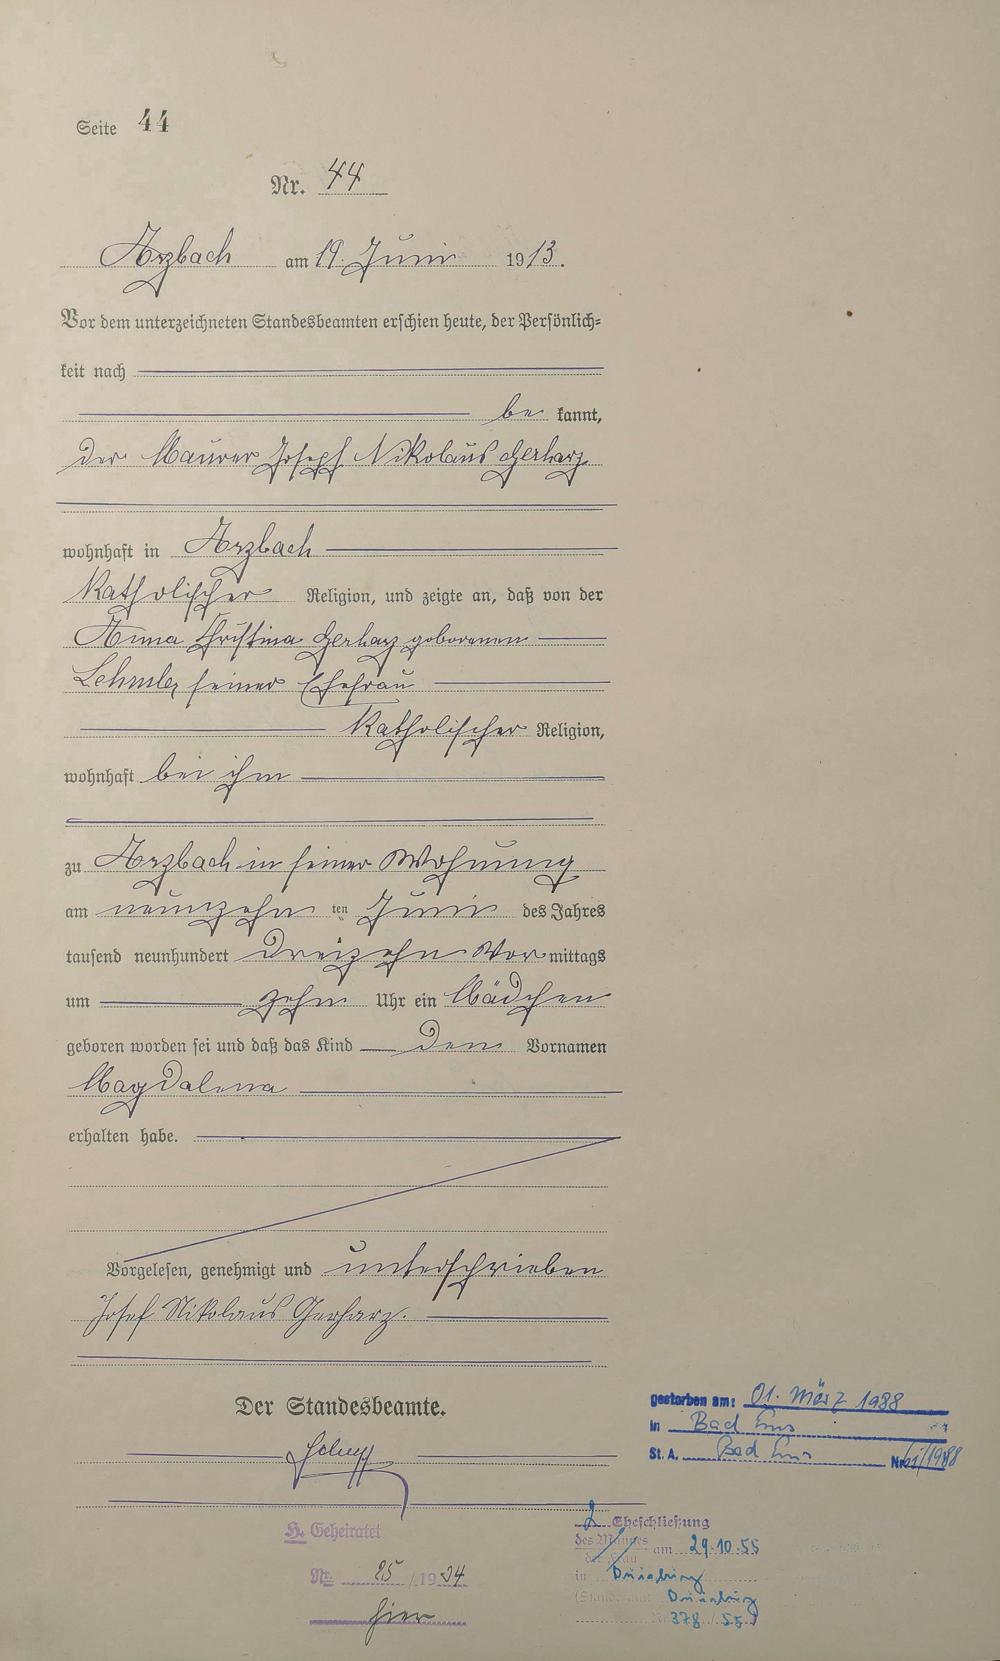 Seite 44
Nr. 44
Arzbach am 19. Juni 1913.
Vor dem unterzeichneten Standesbeamten erschien heute, der Persönlich-
keit nach
be kannt,
der Maurer Joseph Nikolaus Gerharz
wohnhaft in Arzbach
katholischer Religion, und zeigte an, daß von der
Anna Christina Gerharz geborenen
seiner Ehefrau
katholischer Religion,
wohnhaft bei ihm
zu Arzbach in seiner Wohnung
am neunzehn ten Juni des Jahres
tausend neunhundert dreizehn Vor mittags
um zehn Uhr ein Mädchen
geboren worden sei und daß das Kind den Vornamen
Magdalena
erhalten habe.
Vorgelesen, genehmigt und unterschrieben
Josef Nikolaus Gerharz.
Der Standesbeamte.
gestorben am: 01. März 1988
in Bad Ems
St. A. Bad Ems Nr. /1988
H. Geheiratet
Nr. 25/1934
hier
2 Eheschließung
des Mannes am 29.10.55
der Frau
in Duisburg
(Standesamt Duisburg
Nr. 378/55)